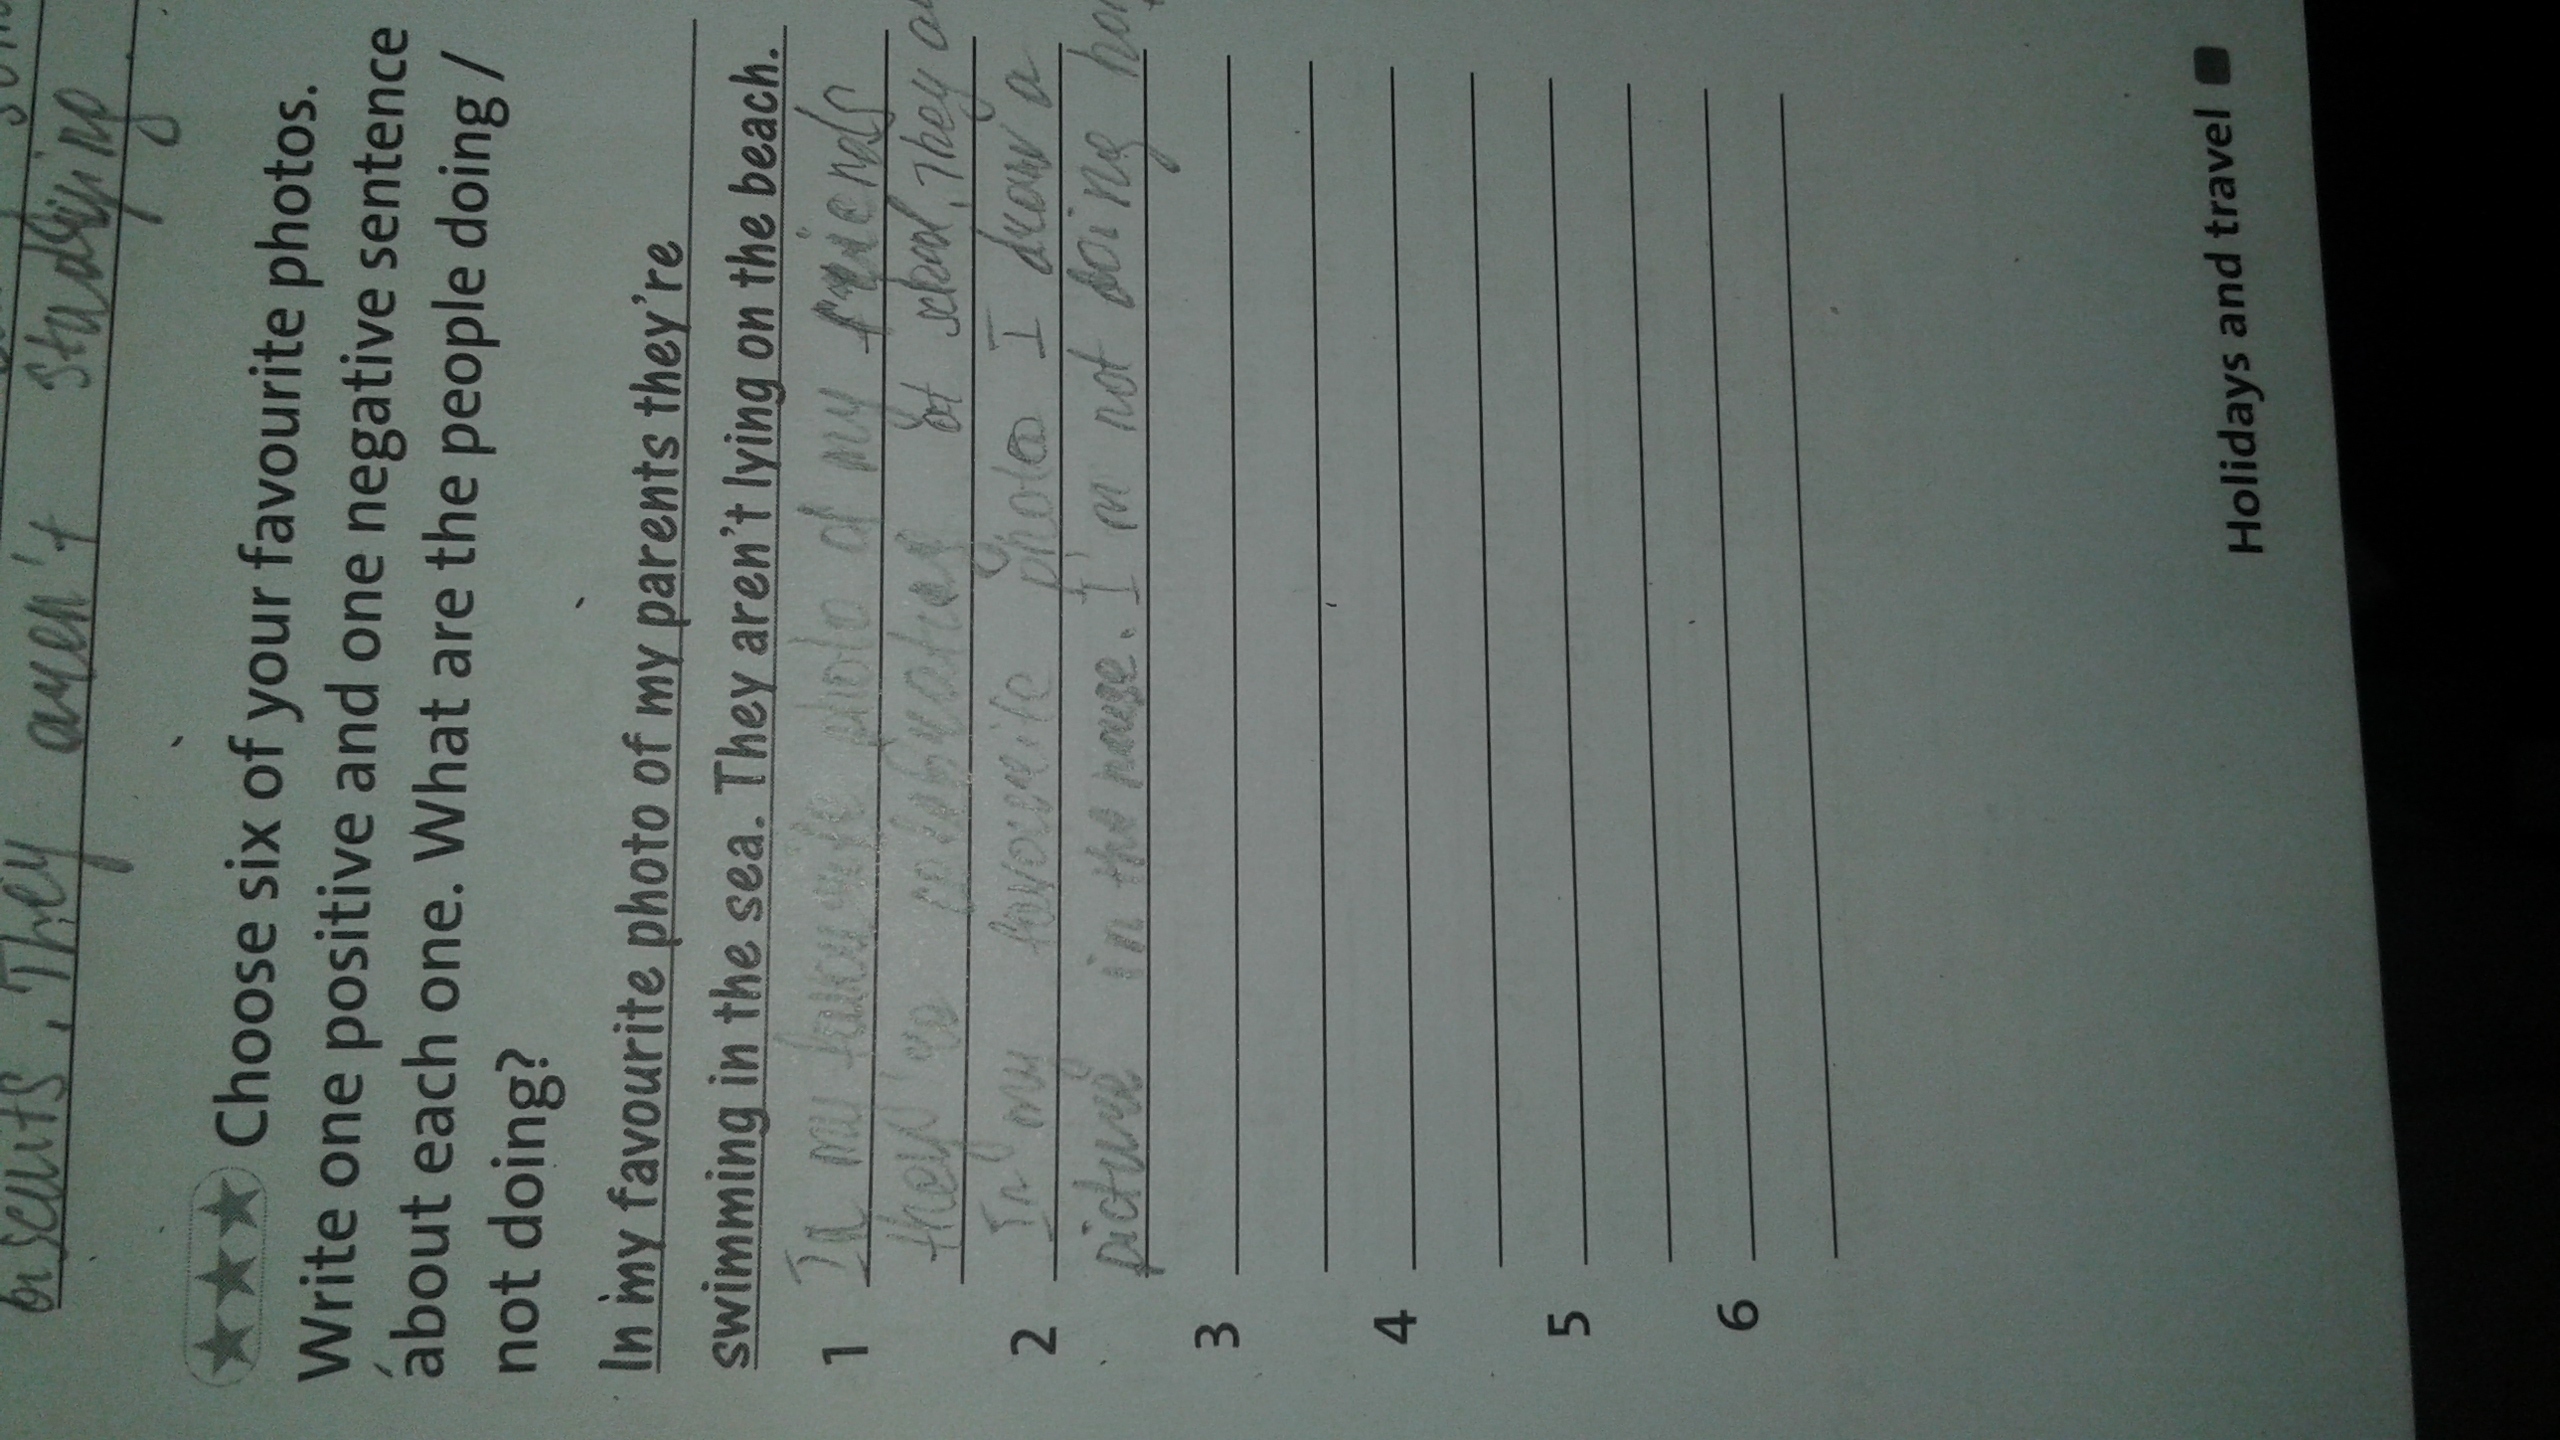 They aren't studying
Choose six of your favourite photos.
Write one positive and one negative sentence
about each one. What are the people doing /
not doing?
In my favourite photo of my parents they're
swimming in the sea. They aren't lying on the beach.
1 In my favourite photo of my friends
they're at school. They
2 In my favourite photo I draw a
picture in the house. I'm not doing
3
4
5
6
Holidays and travel